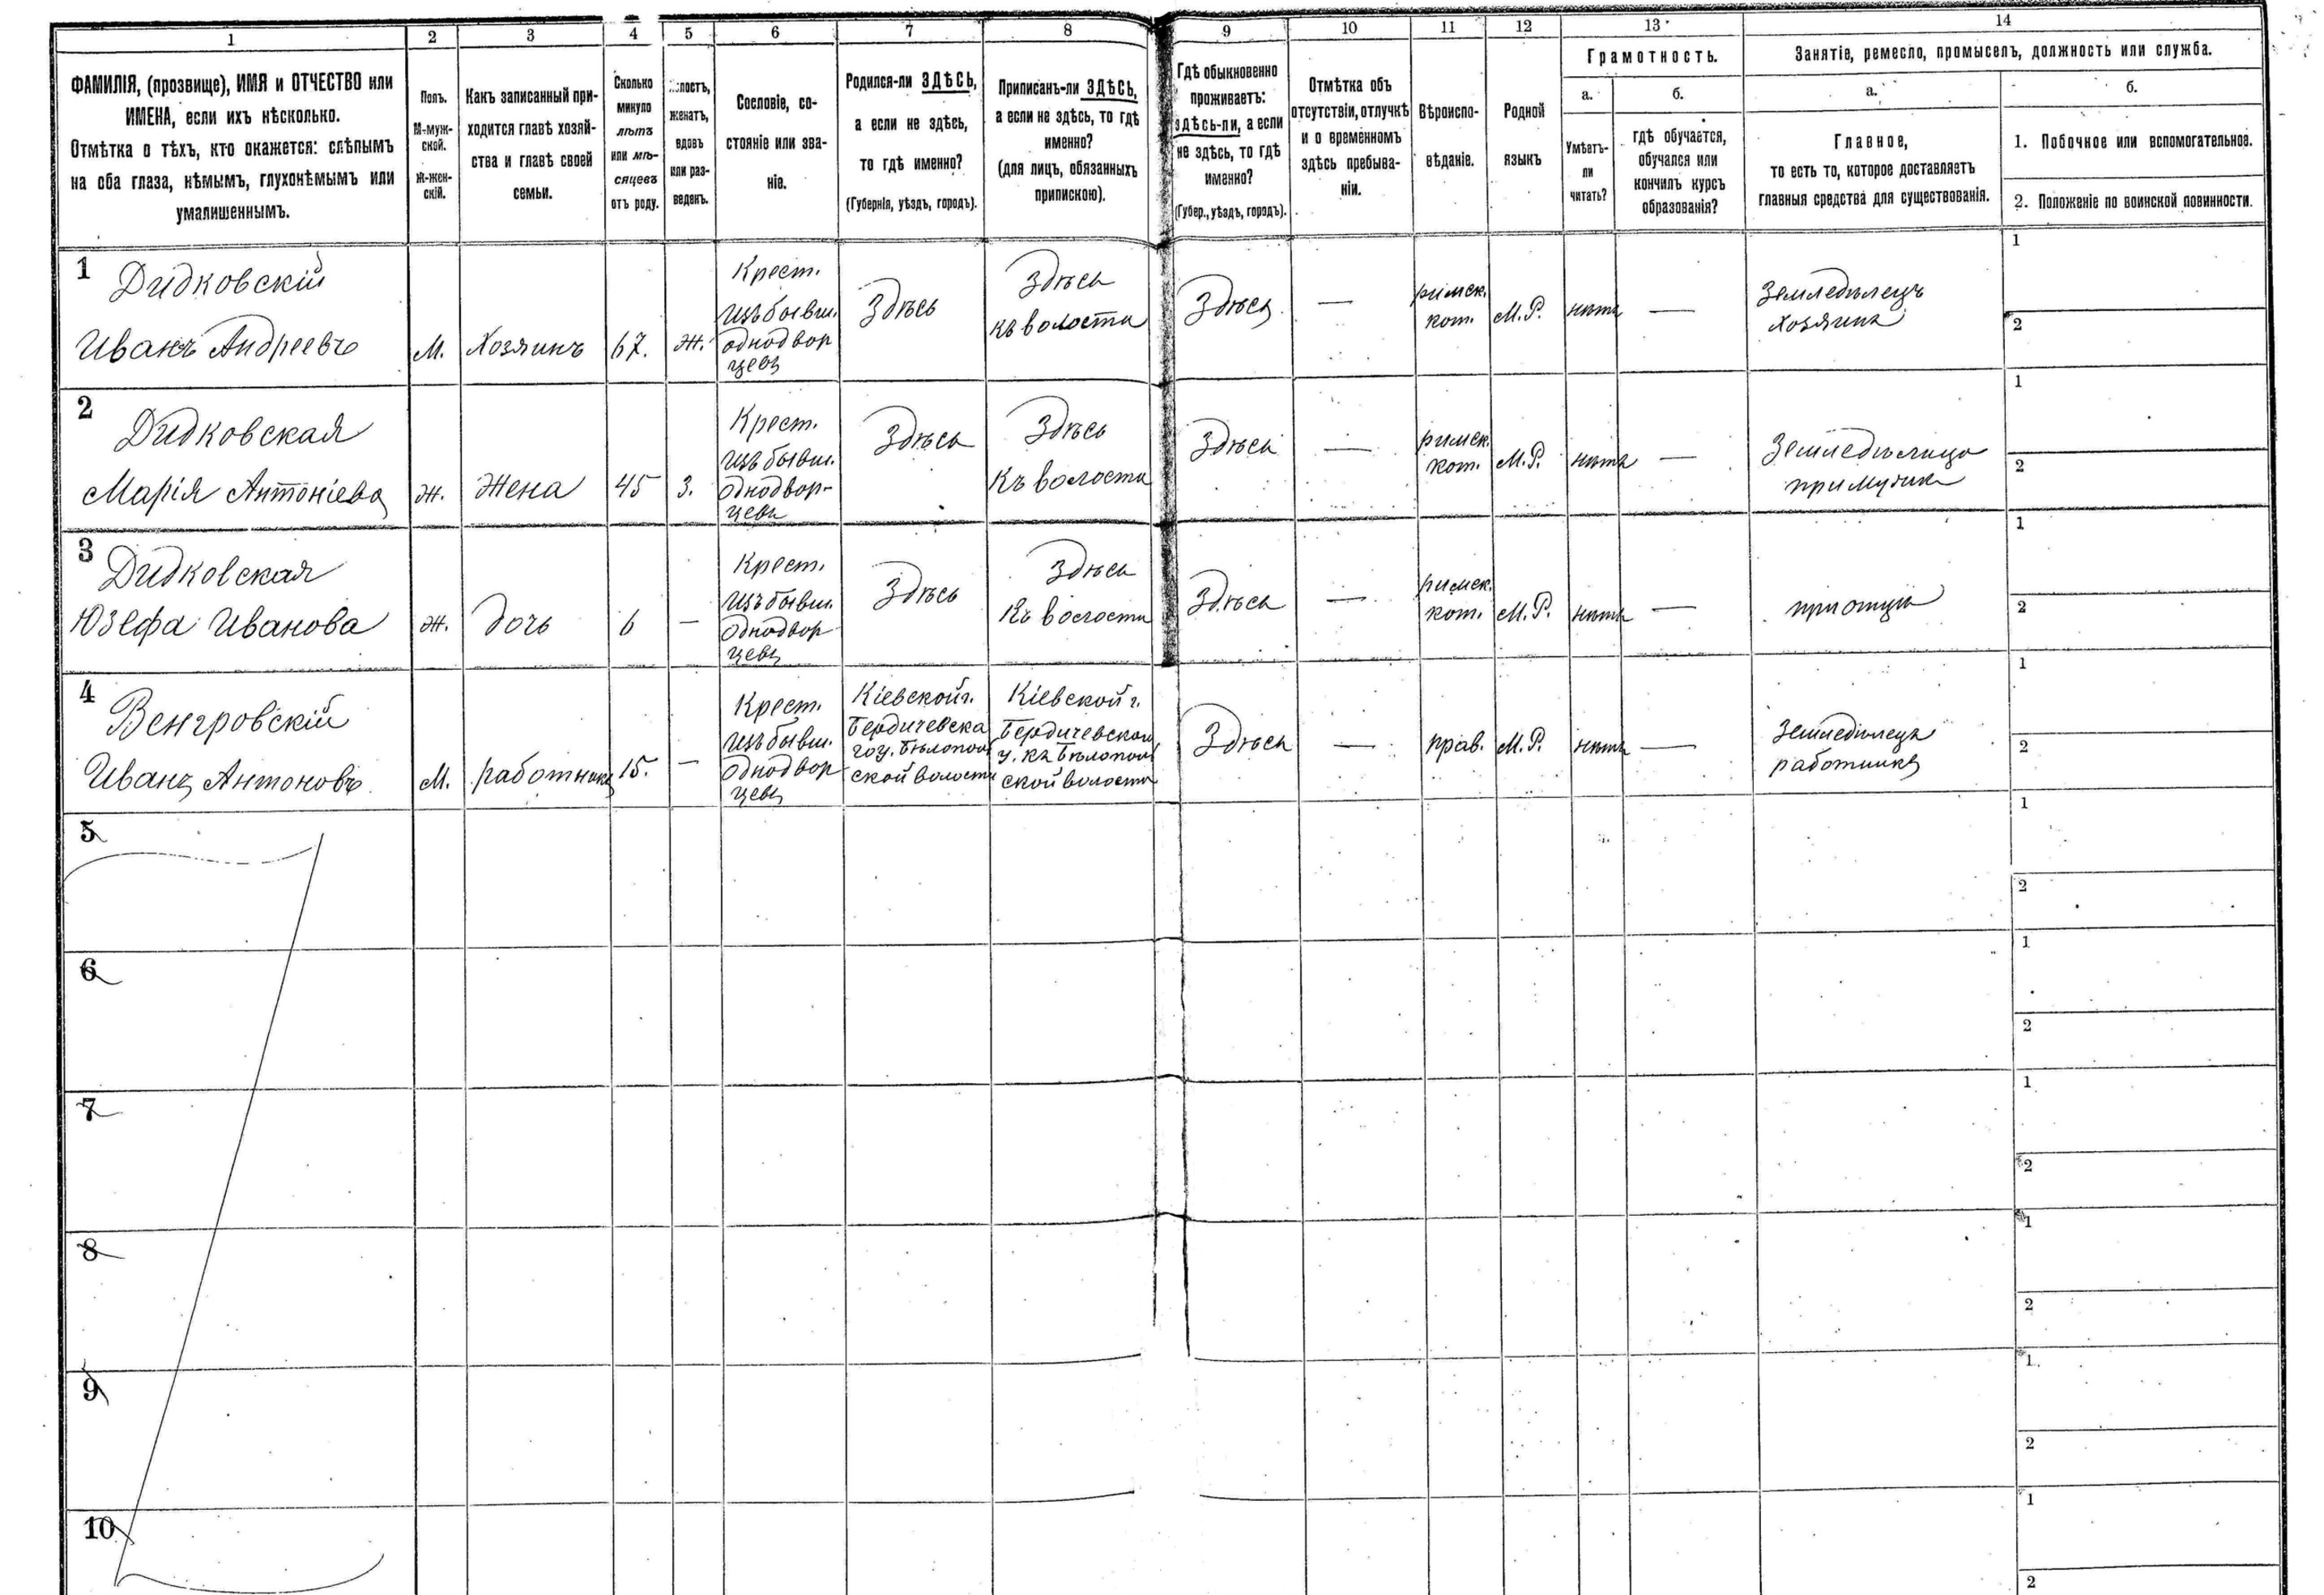 1
2
3
4
5
6
7
8
9
10
11
12
13
14
ФАМИЛІЯ, (прозвище), ИМЯ и ОТЧЕСТВО или
ИМЕНА, если ихъ нѣсколько.
Отмѣтка о тѣхъ, кто окажется: слѣпымъ
на оба глаза, нѣмымъ, глухонѣмымъ или
умалишеннымъ.
Полъ.
М-муж-
ской.
Ж-жен-
скій.
Какъ записанный при-
ходится главѣ хозяй-
ства и главѣ своей
семьи.
Сколько
минуло
лѣтъ
или мѣ-
сяцевъ
отъ роду.
лостъ,
женатъ,
вдовъ
или раз-
веденъ.
Сословіе, со-
стояніе или зва-
ніе.
Родился-ли ЗДѢСЬ,
а если не здѣсь,
то гдѣ именно?
(Губернія, уѣздъ, городъ).
Приписанъ-ли ЗДѢСЬ,
а если не здѣсь, то гдѣ
именно?
(для лицъ, обязанныхъ
припискою).
Гдѣ обыкновенно
проживаетъ:
здѣсь-ли, а если
не здѣсь, то гдѣ
именно?
(Губер., уѣздъ, городъ).
Отмѣтка объ
отсутствіи, отлучкѣ
и о временномъ
здѣсь пребыва-
ніи.
Вѣроиспо-
вѣданіе.
Родной
языкъ
Грамотность.
а.
Умѣетъ-
ли
читать?
б.
гдѣ обучается,
обучался или
кончилъ курсъ
образованія?
Занятіе, ремесло, промыселъ, должность или служба.
а.
Главное,
то есть то, которое доставляетъ
главныя средства для существованія.
б.
1. Побочное или вспомогательное.
2. Положеніе по воинской повинности.
1
Дидковскій
Иванъ Андреевъ
М.
Хозяинъ
67.
ж.
Крест.
изъ бывш.
однодвор
цевъ
Здѣсь
Здѣсь
къ волости
Здѣсь
—
римск.
кат.
М.Р.
нѣтъ
—
Земледѣлецъ
хозяинъ
1
2
2
Дидковская
Марія Антоніева
ж.
Жена
45
З.
Крест.
изъ бывш.
однодвор-
цевъ
Здѣсь
Здѣсь
Къ волости
Здѣсь
—
римск.
кат.
М.Р.
нѣтъ
—
Земледѣлица
при мужѣ
1
2
3
Дидковская
Юзефа Иванова
ж.
дочь
6
—
Крест.
изъ бывш.
однодвор
цевъ
Здѣсь
Здѣсь
Къ волости
Здѣсь
—
римск.
кат.
М.Р.
нѣтъ
—
при отцѣ
1
2
4
Венгровскій
Иванъ Антоновъ
М.
работникъ
15.
—
Крест.
изъ бывш.
однодвор
цевъ
Кіевской г.
Бердичевска
го у. Бѣлопол
ской волости
Кіевской г.
Бердичевскаго
у. къ Бѣлопол
ской волости
Здѣсь
—
прав.
М.Р.
нѣтъ
—
Земледѣлецъ
работникъ
1
2
5
1
2
6
1
2
7
1
2
8
1
2
9
1
2
10
1
2